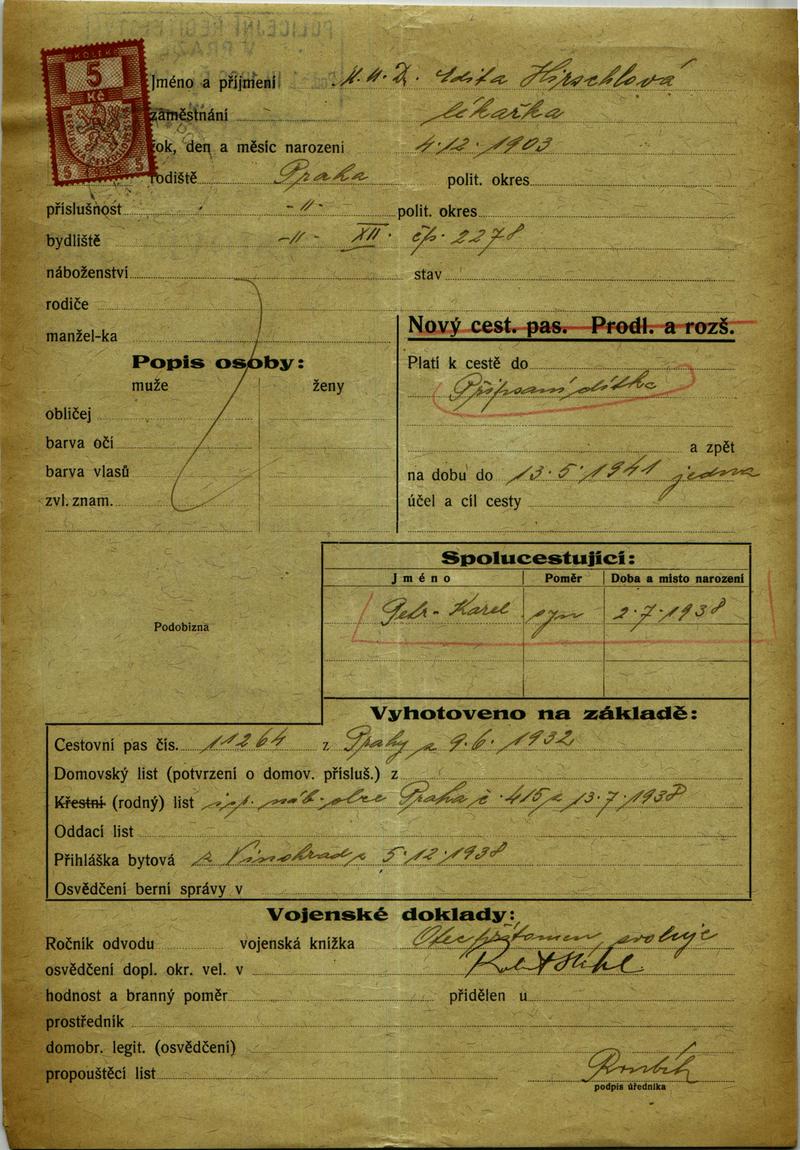 KOLEK
5
Kč
REPUBLIKA ČESKOSLOVENSKÁ
5 1938 5
Jméno a příjmení M.U.D. Edita Hirschlová
zaměstnání lékařka
rok, den a měsíc narozeni 4.12.1903
rodiště Praha polit. okres
příslušnost -"- polit. okres
bydliště -"- XII. čp. 2278
náboženství stav
rodiče
manžel-ka
Nový cest. pas. Prodl. a rozš.
Popis osoby:
muže ženy
obličej
barva očí
barva vlasů
zvl. znam.
Platí k cestě do
Připsaní dítka
a zpět
na dobu do 13.5.1941 jedna
účel a cíl cesty
Podobizna
Spolucestující:
Jméno Poměr Doba a místo narození
Petr-Karel syn 2.7.1938
Vyhotoveno na základě:
Cestovní pas čís. 11264 z Prahy z 9.6.1932
Domovský list (potvrzení o domov. přísluš.) z
Křestní (rodný) list isr. náb. obce Praha č. 415 z 13.7.1938
Oddací list
Přihláška bytová z Vinohrad z 5.12.1938
Osvědčení berní správy v
Vojenské doklady:
Ročník odvodu vojenská knížka Otec přítomen, svoluje
osvědčení dopl. okr. vel. v
hodnost a branný poměr přidělen u
prostředník
domobr. legit. (osvědčení)
propouštěcí list
podpis úředníka